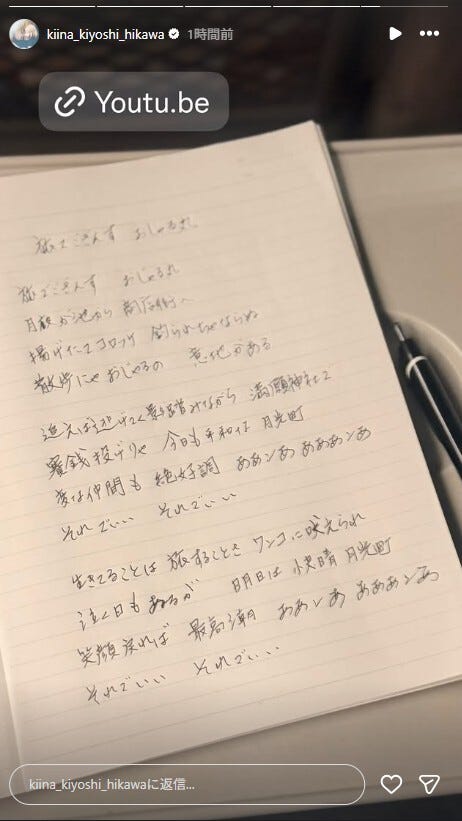 kiina_kiyoshi_hikawa 1時間前
Youtu.be
旅でござんす おじゃる丸
旅でござんす おじゃる丸
月夜が池から 商店街へ
揚げたてコロッケ 釣られちゃならぬ
散歩にゃおじゃるの 意地がある
追えば逃げてく影踏みながら 満願神社で
賽銭投げりゃ 今日も平和な 月光町
変な仲間も 絶好調 ああンああああンあ
それでいい それでいい
生きてることは 旅することさ ワンコに吠えられ
泣く日もあるが 明日は 快晴 月光町
笑顔戻れば 最高潮 ああンああああンあ
それでいい それでいい
kiina_kiyoshi_hikawaに返信...